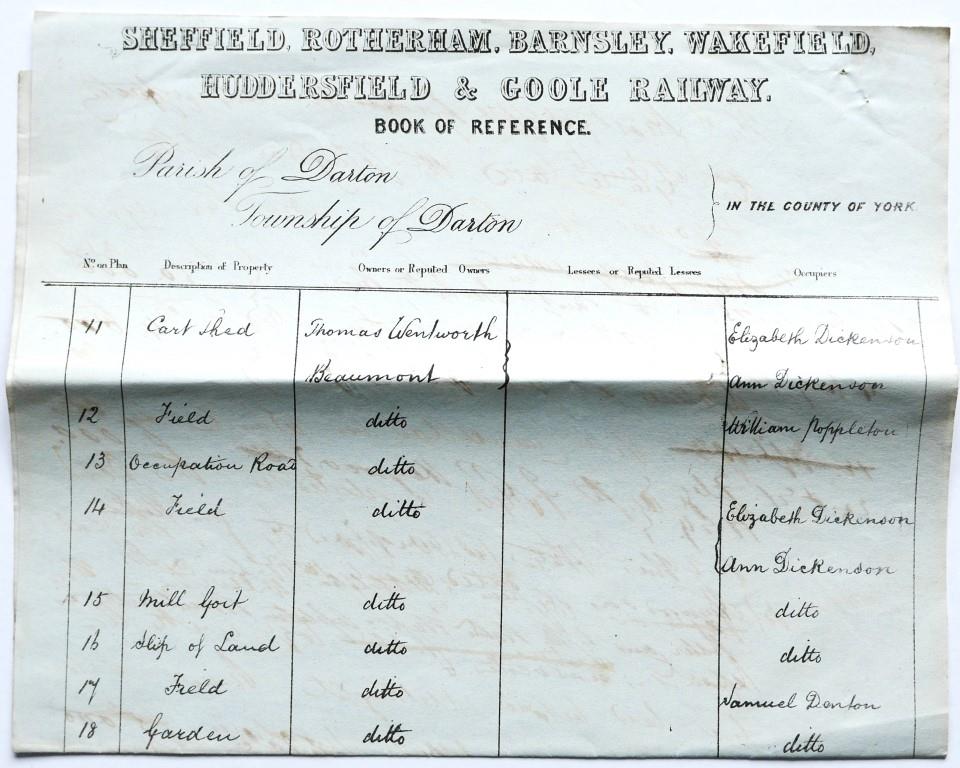 SHEFFIELD, ROTHERHAM, BARNSLEY, WAKEFIELD,
HUDDERSFIELD & GOOLE RAILWAY.
BOOK OF REFERENCE.
Parish of Darton
Township of Darton
IN THE COUNTY OF YORK
No. on Plan Description of Property Owners or Reputed Owners Lessees or Reputed Lessees Occupiers
11 Cart shed Thomas Wentworth Elizabeth Dickenson
Beaumont Ann Dickenson
12 Field ditto William Poppleton
13 Occupation Road ditto
14 Field ditto Elizabeth Dickenson
Ann Dickenson
15 Mill Goit ditto ditto
16 Slip of Land ditto ditto
17 Field ditto Samuel Denton
18 Garden ditto ditto